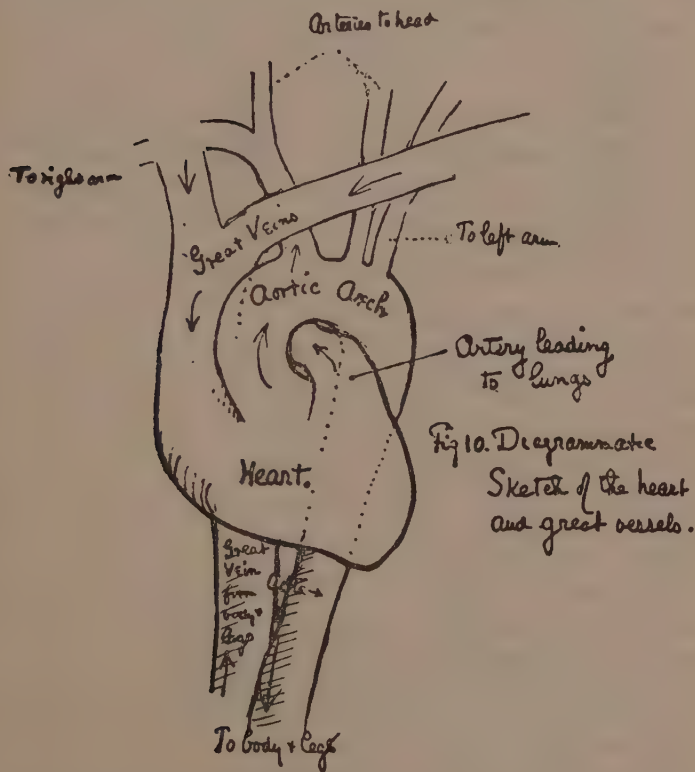 Arteries to head
To right arm
Great Veins
To left arm
Aortic Arch
Artery leading
to lungs
Heart.
Fig 10. Diagrammatic
Sketch of the heart
and great vessels.
Great
Vein
from
body +
legs
To body + legs